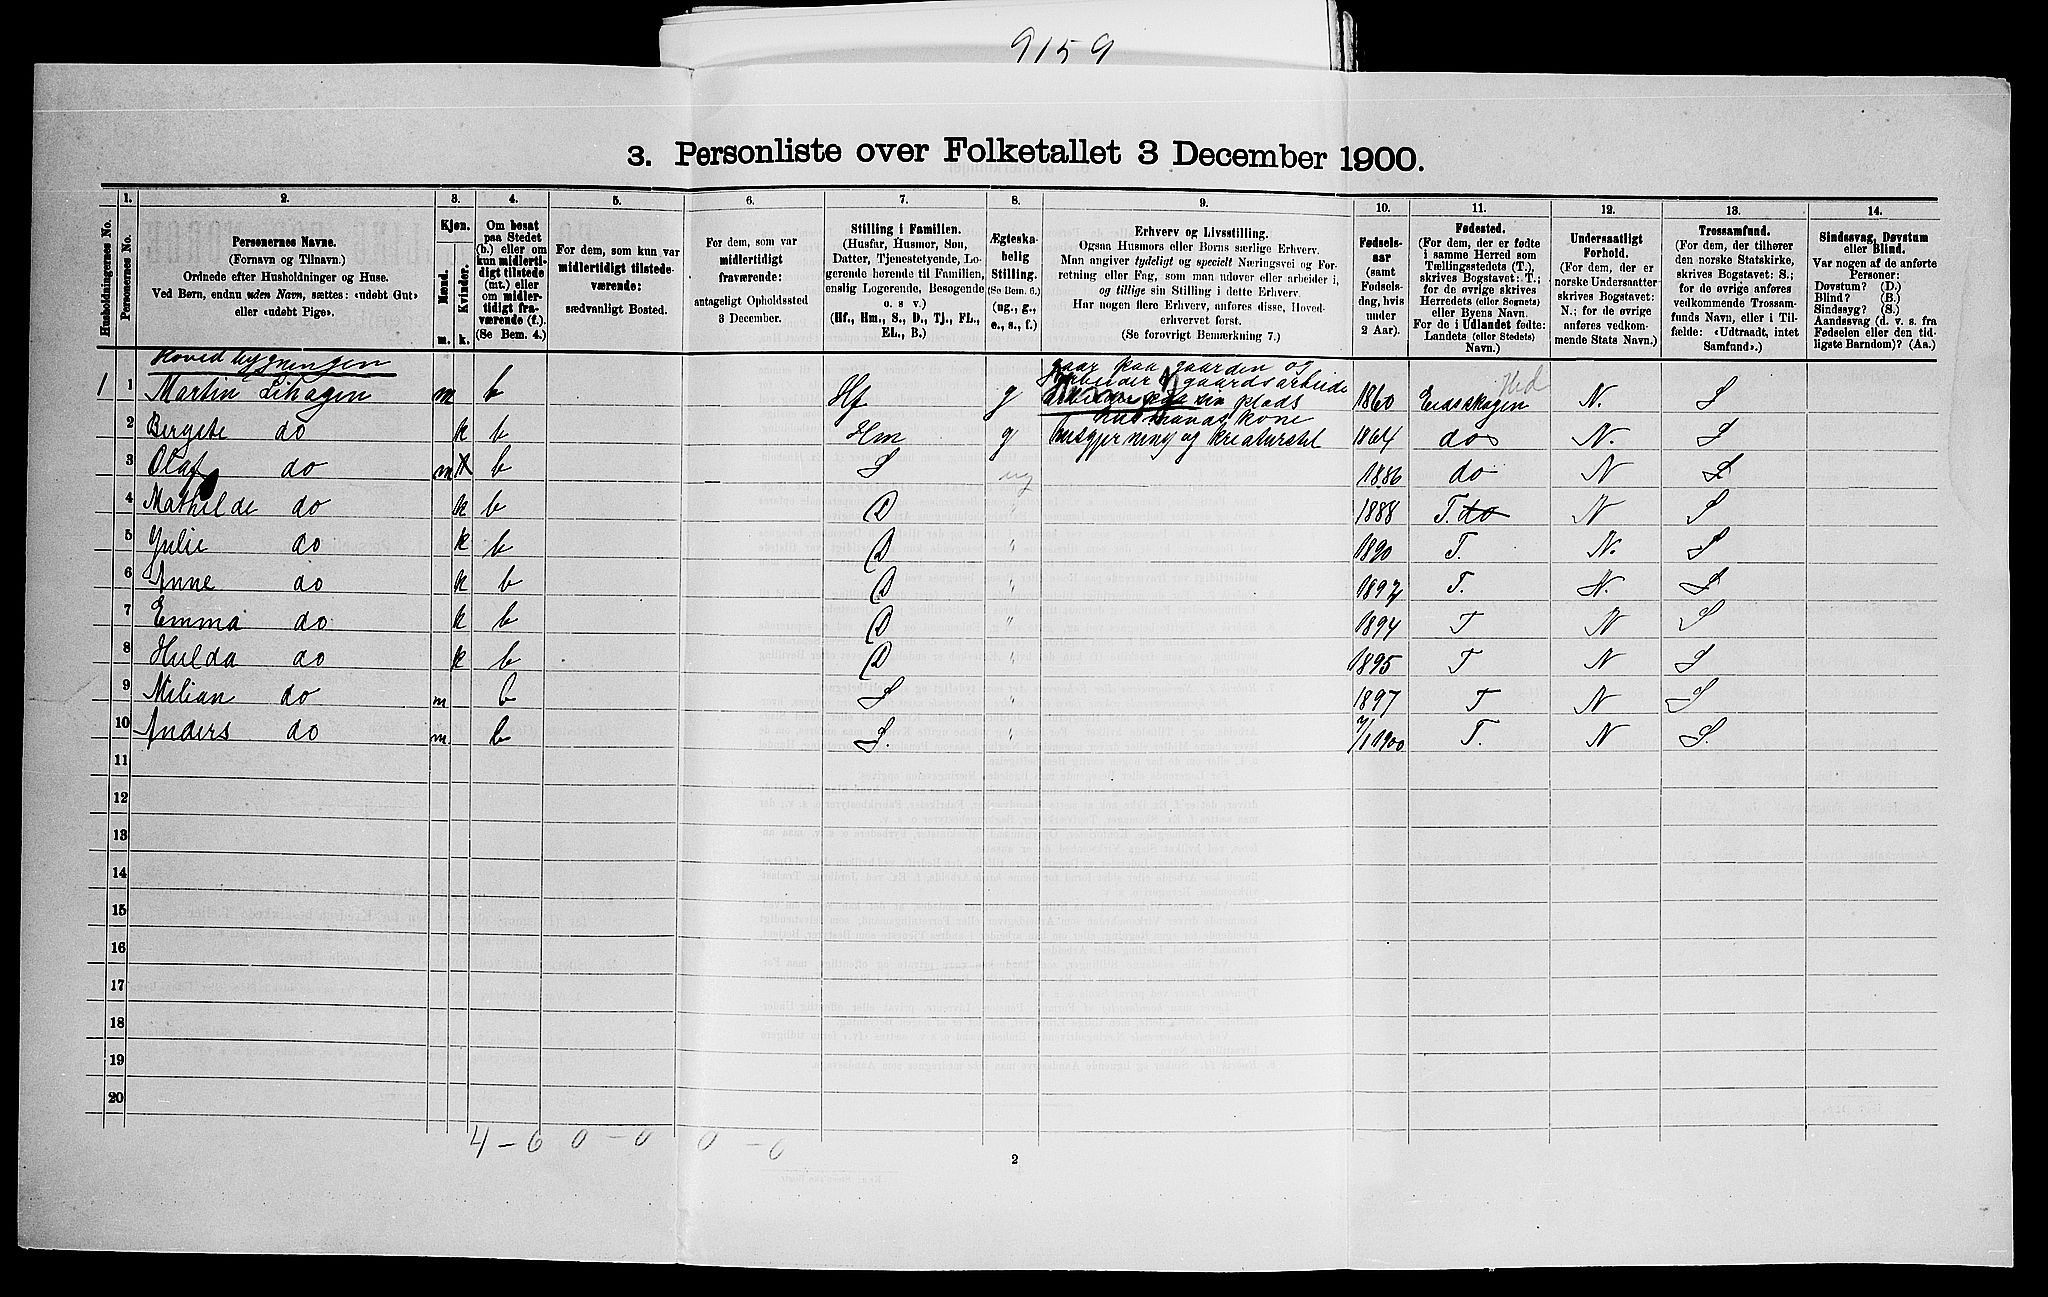 9159
3. Personliste over Folketallet 3 December 1900.
1. 2. 3. 4. 5. 6. 7. 8. 9. 10. 11. 12. 13. 14.
Husholdningernes No.
Personernes No.
Personernes Navne.
(Fornavn og Tilnavn.)
Ordnede efter Husholdninger og Huse.
Ved Børn, endnu uden Navn, sættes: «udøbt Gut»
eller «udøbt Pige».
Kjøn.
Mænd. Kvinder.
m. k.
Om bosat
paa Stedet
(b.) eller om
kun midlerti-
digt tilstede
(mt.) eller
om midler-
tidigt fra-
værende (f.).
(Se Bem. 4.)
For dem, som kun var
midlertidigt tilstede-
værende:
sædvanligt Bosted.
For dem, som var
midlertidigt
fraværende:
antageligt Opholdssted
3 December.
Stilling i Familien.
(Husfar, Husmor, Søn,
Datter, Tjenestetyende, Lo-
gerende hørende til Familien,
enslig Logerende, Besøgende
o. s. v.)
(Hf., Hm., S., D., Tj., FL.,
EL., B.)
Ægteska-
belig
Stilling.
(Se Bem. 6.)
(ug., g.,
e., s., f.)
Erhverv og Livsstilling.
Ogsaa Husmors eller Børns særlige Erhverv.
Man angiver tydeligt og specielt Næringsvei og For-
retning eller Fag, som man udøver eller arbeider i,
og tillige sin Stilling i dette Erhverv.
Har nogen flere Erhverv, anføres disse, Hoved-
erhvervet først.
(Se forøvrigt Bemærkning 7.)
Fødsels-
aar
(samt
Fødsels-
dag, hvis
under
2 Aar).
Fødested.
(For dem, der er fødte
i samme Herred som
Tællingsstedets (T.),
skrives Bogstavet: T.;
for de øvrige skrives
Herredets (eller Sognets)
eller Byens Navn.
For de i Udlandet fødte:
Landets (eller Stedets)
Navn.)
Undersaatligt
Forhold.
(For dem, der er
norske Undersaatter
skrives Bogstavet:
N.; for de øvrige
anføres vedkom-
mende Stats Navn.)
Trossamfund.
(For dem, der tilhører
den norske Statskirke,
skrives Bogstavet: S.;
for de øvrige anføres
vedkommende Trossam-
funds Navn, eller i Til-
fælde: «Udtraadt, intet
Samfund».)
Sindssvag, Døvstum
eller Blind.
Var nogen af de anførte
Personer:
Døvstum? (D.)
Blind? (B.)
Sindssyg? (S.)
Aandssvag (d. v. s. fra
Fødselen eller den tid-
ligste Barndom)? (Aa.)
Hovedbygningen
gaar paa gaarden og
arbeider gaardsarbeide
1 1 Martin Lihagen m b Hf g sin plads 1860 Eidsskogen Hed N. S
husmandskone
2 Bergete do k b Hm g husgjerning og kreaturstel 1864 do N. S
3 Olaf do m b S ug 1886 do N S
4 Mathilde do k b D " 1888 T. do N S
5 Julie do k b D " 1890 T. N. S
6 Anne do k b D " 1892 T. N. S
7 Emma do k b D " 1894 T N S
8 Hulda do k b D " 1895 T N S
9 Milian do m b S " 1897 T N S
10 Anders do m. b S. " 7/1 1900 T. N S.
11
12
13
14
15
16
17
18
19
20
4 - 6 0 - 0 0 - 0
2